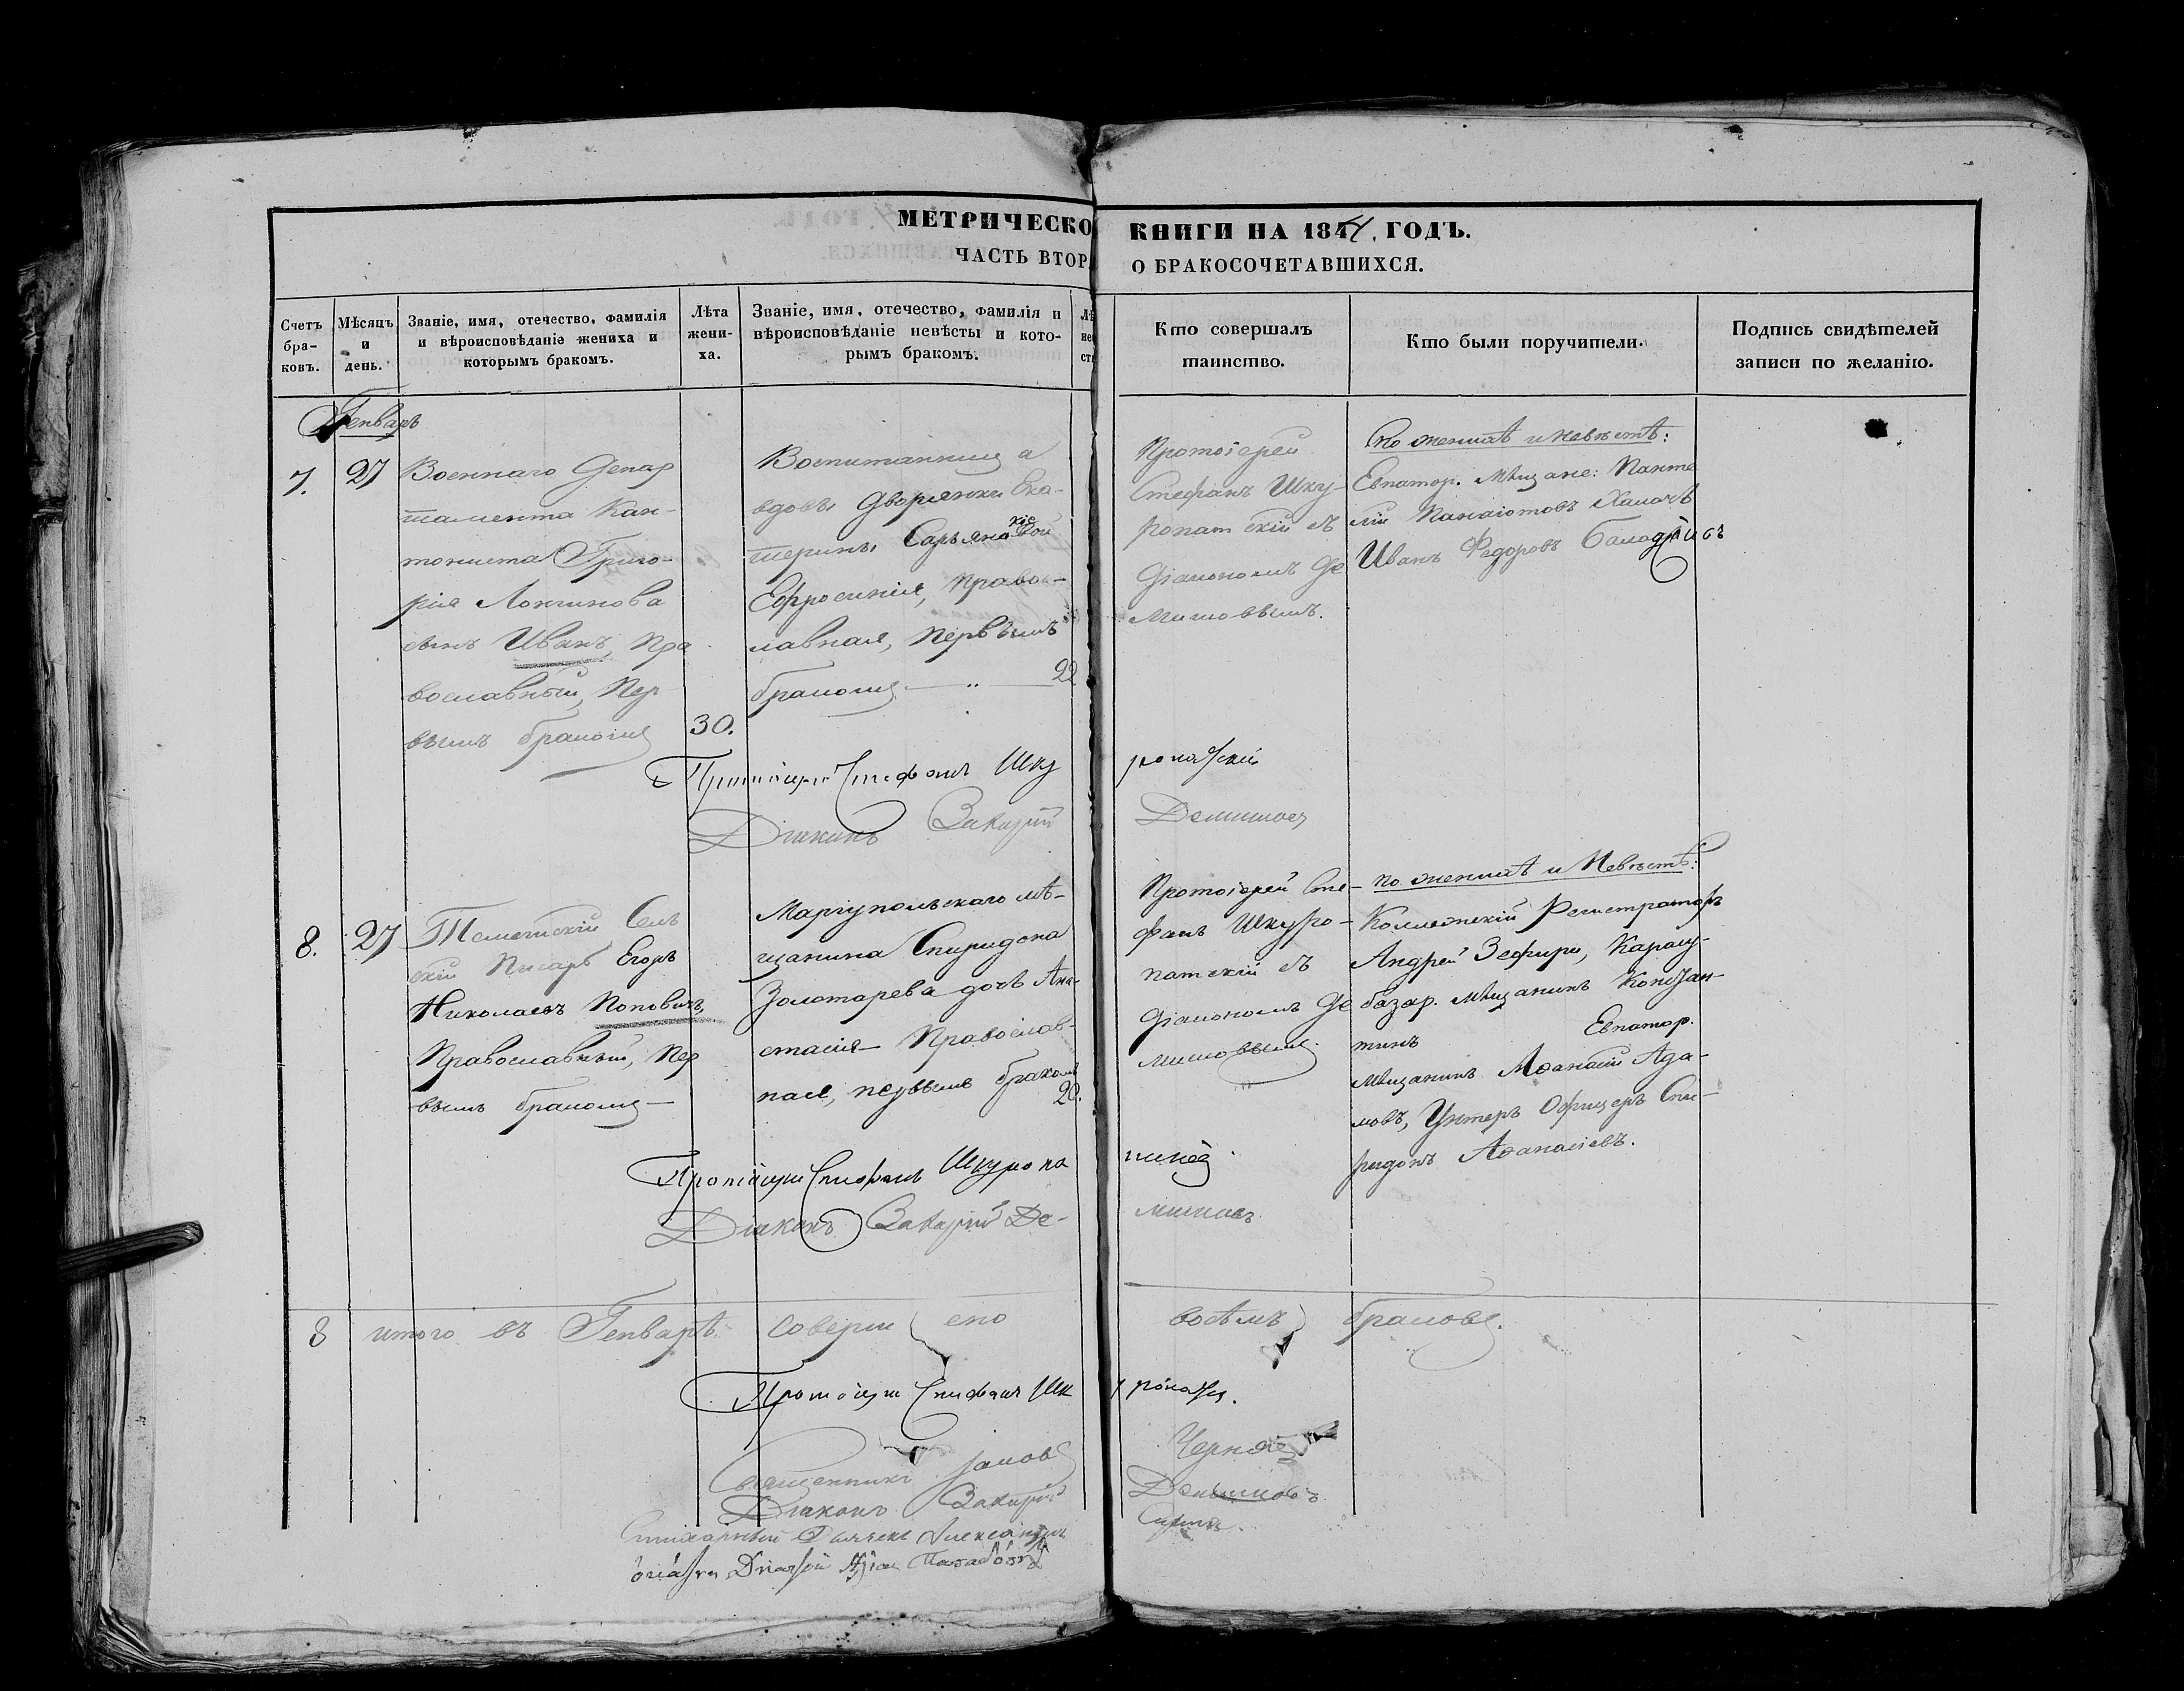 МЕТРИЧЕСКО КНИГИ НА 1844. ГОДЪ.
ЧАСТЬ ВТОР. О БРАКОСОЧЕТАВШИХСЯ.
Счетъ бра-
ковъ.
Мѣсяцъ
и
день.
Званіе, имя, отечество, фамилія
и вѣроисповѣданіе жениха и
которымъ бракомъ.
Лѣта
жени-
ха.
Званіе, имя, отечество, фамилія и
вѣроисповѣданіе невѣсты и кото-
рымъ бракомъ.
Лѣ
не
ст
Кто совершалъ
таинство.
Кто были поручители.
Подпись свидѣтелей
записи по желанію.
Генварь
7.
27
Военнаго Депар
тамента Кан-
тониста Григо-
рія Лонгинова
сынъ Иванъ, Пра
вославный, Пер
вымъ бракомъ
30.
Воспитанница
вдовы Дворянки Ека-
терины
Ефросинія, Право-
лавная, первымъ
бракомъ — „ — 22
Протоіерей
Стефанъ Шку-
ропатскій съ
Діакономъ Де
мишовымъ.
По женихѣ и невѣстѣ:
Евпатор. Мѣщане: Панте
лій Панаіотовъ
Иванъ Федоровъ
Протоіерей Стефанъ Шку ропатскій
Діаконъ Захарій Демишовъ
8.
27
скій Писарь Егоръ
Николаевъ Поповичъ,
Православный, Пер
вымъ бракомъ —
Маріупольскаго мѣ-
щанина Спиридона
Золотарева дочь Ана-
стасія — Православ-
ная, первымъ бракомъ
20.
Протоіерей Сте-
фанъ Шкуро-
патскій съ
Діакономъ Де
мишовымъ.
по женихѣ и Невѣстѣ:
Коллежскій Регистраторъ
Андрей Зефиро, Карасу-
базар. мѣщанинъ Констан-
тинъ Евпатор.
мѣщанинъ Аѳанасій Ада-
мовъ, Унтеръ Офицеръ Спи-
ридонъ Аѳанасіевъ.
Протоіерей Стефанъ Шкуропа
Діаконъ Захарій Де- мишовъ
8 итого въ Генварѣ совершено восѣмь браковъ.
Протоіерей Стефанъ Шк
Священникъ
Діаконъ Захарій Демишовъ
Стихарный Дьячекъ Александръ